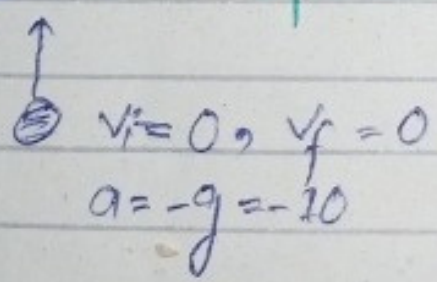 Vi = 0, Vf = 0
a = -g = -10